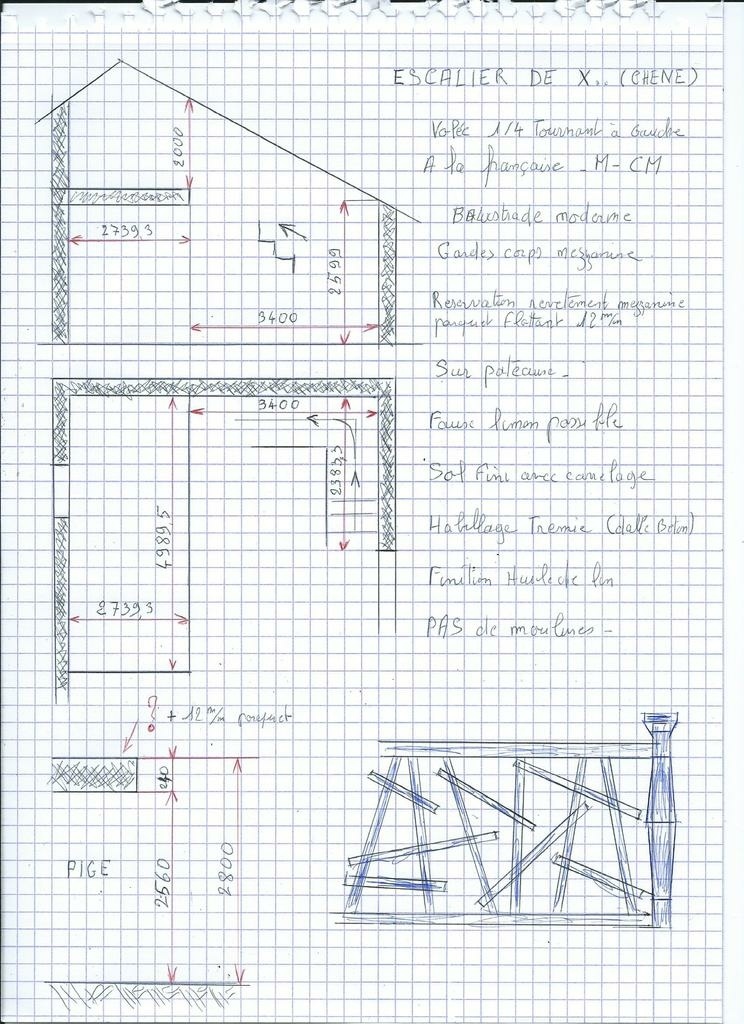 ESCALIER DE X.. (CHENE)
Volée 1/4 Tournant à Gauche
A la française - M - CM
Balustrade moderne
Gardes corps mezzanine
Reservation revetement mezzanine
parquet flottant 12 m/m
Sur poteaux -
Faux limon possible
Sol Fini avec carrelage
Habillage Tremie (dalle Beton)
Finition Huile de lin
PAS de moulures -
2000
2739,3
2599
3400
3400
2383,3
4989,5
2739,3
? + 12 m/m parquet
240
PIGE
2560
2800